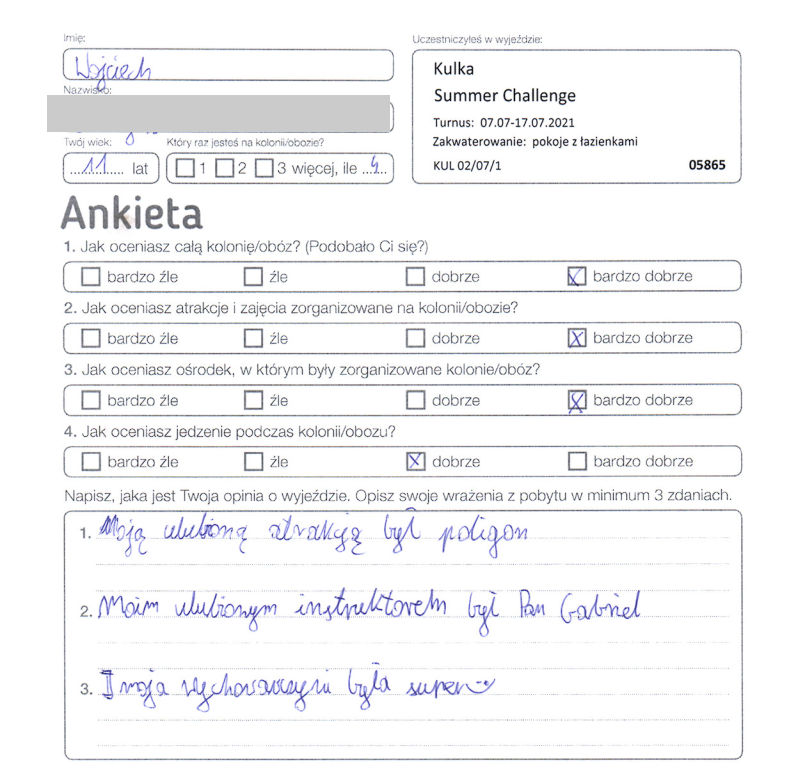 Imię:
Wojciech
Nazwisko:
Twój wiek:
11 lat
Który raz jesteś na kolonii/obozie?
1 2 3 więcej, ile 4
Uczestniczyłeś w wyjeździe:
Kulka
Summer Challenge
Turnus: 07.07-17.07.2021
Zakwaterowanie: pokoje z łazienkami
KUL 02/07/1 05865
Ankieta
1. Jak oceniasz całą kolonię/obóz? (Podobało Ci się?)
bardzo źle źle dobrze bardzo dobrze
2. Jak oceniasz atrakcje i zajęcia zorganizowane na kolonii/obozie?
bardzo źle źle dobrze bardzo dobrze
3. Jak oceniasz ośrodek, w którym były zorganizowane kolonie/obóz?
bardzo źle źle dobrze bardzo dobrze
4. Jak oceniasz jedzenie podczas kolonii/obozu?
bardzo źle źle dobrze bardzo dobrze
Napisz, jaka jest Twoja opinia o wyjeździe. Opisz swoje wrażenia z pobytu w minimum 3 zdaniach.
1. Moją ulubioną atrakcją był poligon
2. Moim ulubionym instruktorem był Pan Gabriel
3. I moja wychowawczyni była super